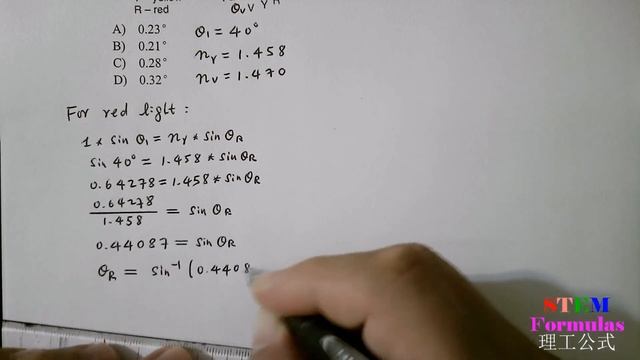 R – red
θᵥ V Y R
A) 0.23°
B) 0.21°
C) 0.28°
D) 0.32°
θ₁ = 40°
nᵧ = 1.458
nᵥ = 1.470
For red light :
1 * sin θ₁ = nᵧ * sin θR
sin 40° = 1.458 * sin θR
0.64278 = 1.458 * sin θR
0.64278 / 1.458 = sin θR
0.44087 = sin θR
θR = sin⁻¹ (0.4408
STEM
Formulas
理工公式